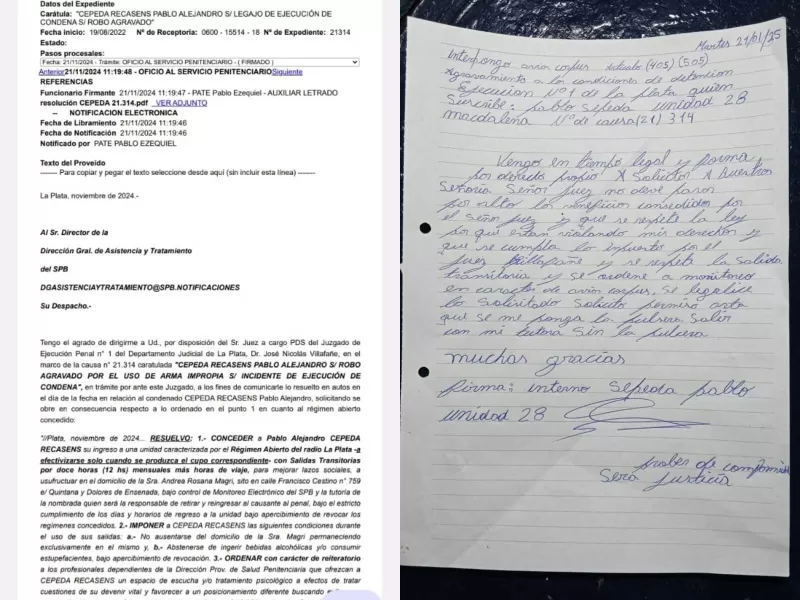 Datos del Expediente
Carátula: "CEPEDA RECASENS PABLO ALEJANDRO S/ LEGAJO DE EJECUCIÓN DE
CONDENA S/ ROBO AGRAVADO"
Fecha inicio: 19/08/2022 Nº de Receptoría: 0600 - 15514 - 18 Nº de Expediente: 21314
Estado:
Pasos procesales:
Fecha: 21/11/2024 - Trámite: OFICIO AL SERVICIO PENITENCIARIO - ( FIRMADO )
Anterior21/11/2024 11:19:48 - OFICIO AL SERVICIO PENITENCIARIOSiguiente
REFERENCIAS
Funcionario Firmante 21/11/2024 11:19:47 - PATE Pablo Ezequiel - AUXILIAR LETRADO
resolución CEPEDA 21.314.pdf VER ADJUNTO
-- NOTIFICACION ELECTRONICA
Fecha de Libramiento 21/11/2024 11:19:46
Fecha de Notificación 21/11/2024 11:19:46
Notificado por PATE PABLO EZEQUIEL
Texto del Proveido
------- Para copiar y pegar el texto seleccione desde aquí (sin incluir esta línea) -------
La Plata, noviembre de 2024.-
Al Sr. Director de la
Dirección Gral. de Asistencia y Tratamiento
del SPB
DGASISTENCIAYTRATAMIENTO@SPB.NOTIFICACIONES
Su Despacho.-
Tengo el agrado de dirigirme a Ud., por disposición del Sr. Juez a cargo PDS del Juzgado de
Ejecución Penal n° 1 del Departamento Judicial de La Plata, Dr. José Nicolás Villafañe, en el
marco de la causa n° 21.314 caratulada "CEPEDA RECASENS PABLO ALEJANDRO S/ ROBO
AGRAVADO POR EL USO DE ARMA IMPROPIA S/ INCIDENTE DE EJECUCIÓN DE
CONDENA", en trámite por ante este Juzgado, a los fines de comunicarle lo resuelto en autos en
el día de la fecha en relación al condenado CEPEDA RECASENS Pablo Alejandro, solicitando se
obre en consecuencia respecto a lo ordenado en el punto 1 en cuanto al régimen abierto
concedido:
"//Plata, noviembre de 2024... RESUELVO: 1.- CONCEDER a Pablo Alejandro CEPEDA
RECASENS su ingreso a una unidad caracterizada por el Régimen Abierto del radio La Plata -a
efectivizarse solo cuando se produzca el cupo correspondiente- con Salidas Transitorias
por doce horas (12 hs) mensuales más horas de viaje, para mejorar lazos sociales, a
usufructuar en el domicilio de la Sra. Andrea Rosana Magri, sito en calle Francisco Cestino n° 759
e/ Quintana y Dolores de Ensenada, bajo control de Monitoreo Electrónico del SPB y la tutoría de
la nombrada quien será la responsable de retirar y reingresar al causante al penal, bajo el estricto
cumplimiento de los días y horarios de regreso a la unidad bajo apercibimiento de revocar los
regímenes concedidos. 2.- IMPONER a CEPEDA RECASENS las siguientes condiciones durante
el uso de sus salidas: a.- No ausentarse del domicilio de la Sra. Magri permaneciendo
exclusivamente en el mismo y, b.- Abstenerse de ingerir bebidas alcohólicas y/o consumir
estupefacientes, bajo apercibimiento de revocación. 3.- ORDENAR con carácter de reiteratorio
a los profesionales dependientes de la Dirección Prov. de Salud Penitenciaria que ofrezcan a
CEPEDA RECASENS un espacio de escucha y/o tratamiento psicológico a efectos de tratar
cuestiones de su devenir vital y favorecer a un posicionamiento diferente buscando
Martes 21/01/25
Interpongo avion corpus articulo (405) (505)
Agravamiento a las condiciones de detencion
Ejecucion Nº1 de la plata quien
Suscribe: pablo sepeda unidad 28
magdalena Nº de causa (21) 314
Vengo en tiempo legal y forma
por derecho propio A Solicitar A Vuestra
Señoria Señor juez no deve pasar
por alto los veneficios consedidos por
el Señor juez y que se respete la ley
por que estan violando mis derechos y
que se cumpla los inpuestos por el
juez billafañe y se respete la salida
transitoria y se ordene a monitoreo
en caracter de avion corpus. Se legalice
lo solisitado Solicito permiso asta
que se me ponga la pulsera Salir
con mi tutora sin la pulsera
muchas gracias
firma: interno Sepeda pablo
unidad 28
probes de compromiso
Sera justicia